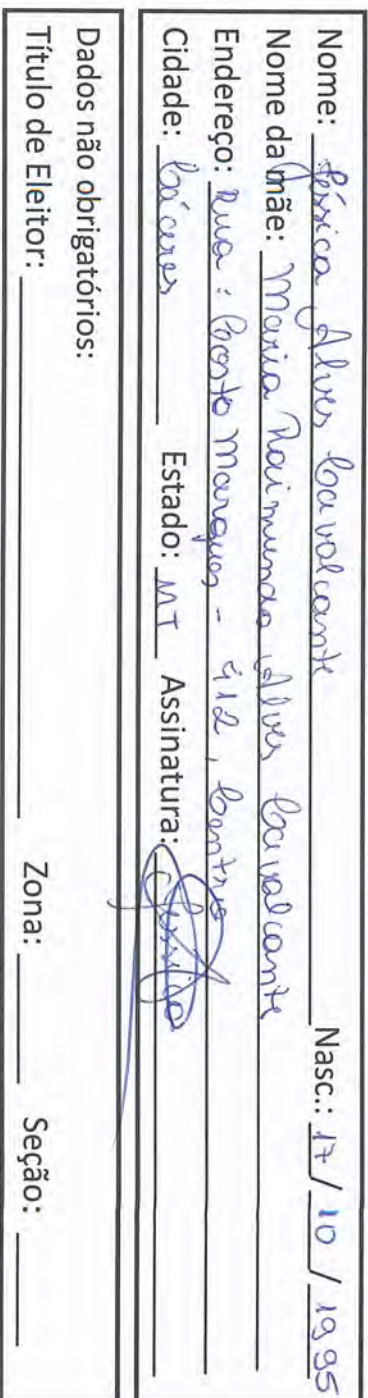 Nome: Jéssica Alves Cavalcante Nasc.: 17 / 10 / 1995
Nome da mãe: Maria Raimunda Alves Cavalcante
Endereço: Rua: Costa Marques - 412, Centro
Cidade: Cáceres Estado: MT Assinatura: Jéssica
Dados não obrigatórios:
Título de Eleitor: Zona: Seção: